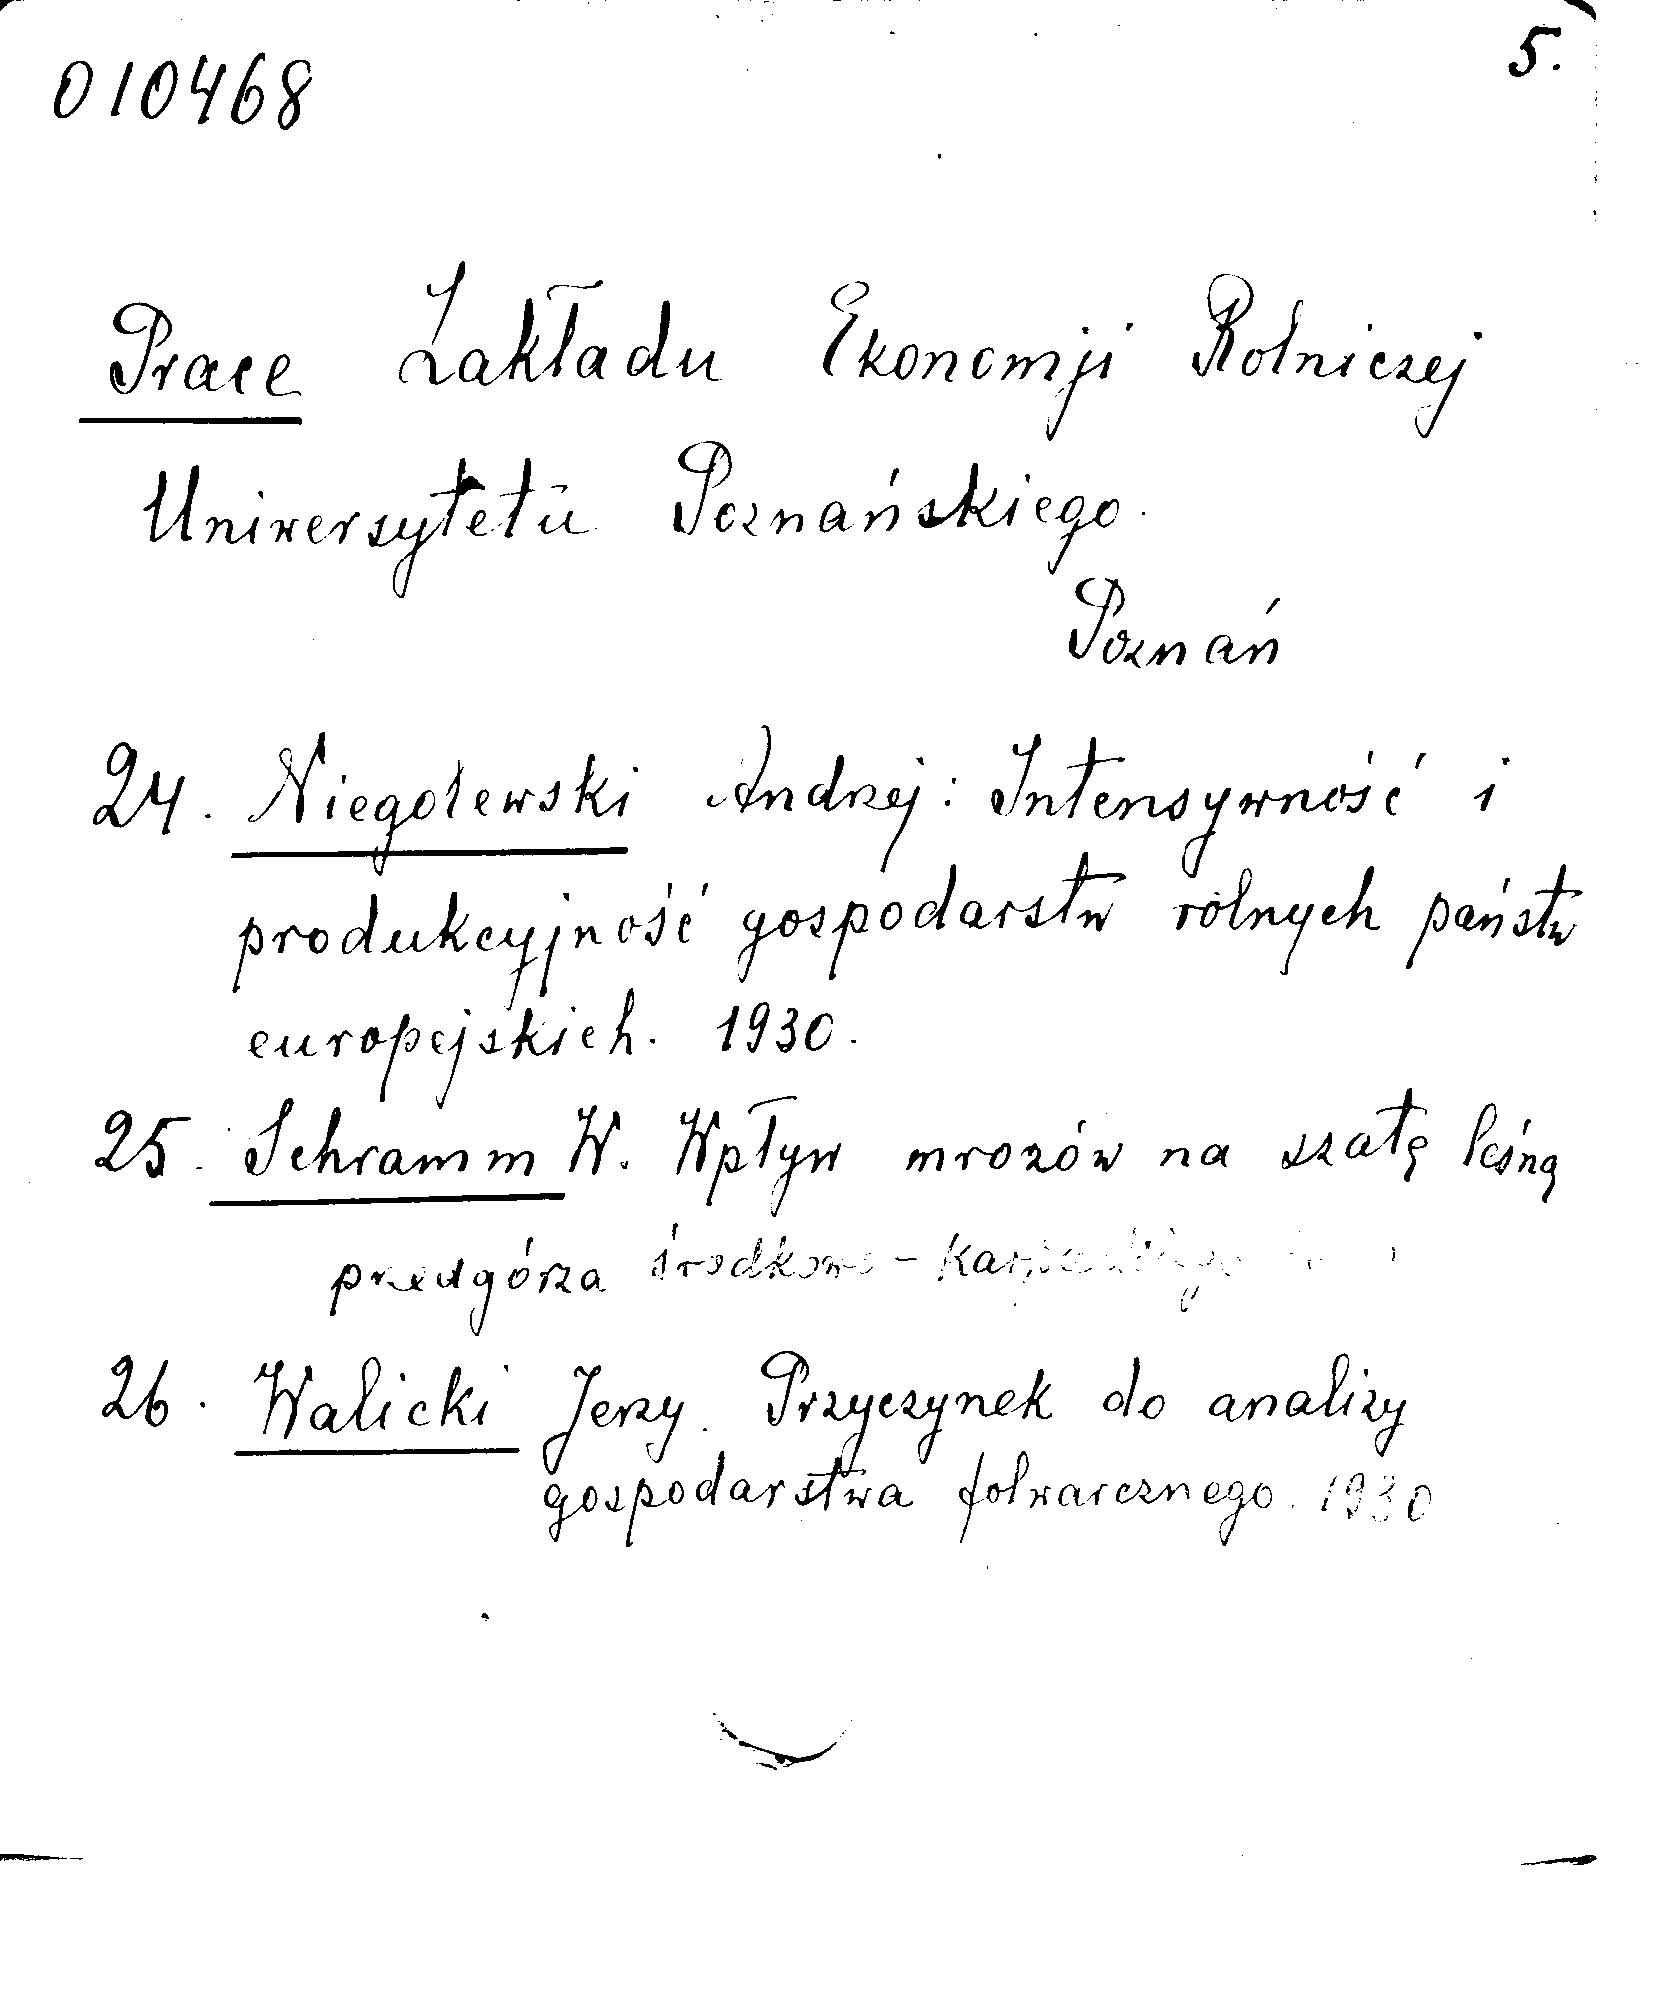 010468
5.
Prace Zakładu Ekonomji Rolniczej
Uniwersytetu Poznańskiego.
Poznań
24. Niegolewski Andrzej: Intensywność i
produkcyjność gospodarstw rolnych państw
europejskich. 1930.
25. Schramm W. Wpływ mrozów na szatę leśną
przedgórza środkowo-karpackiego
26. Walicki Jerzy. Przyczynek do analizy
gospodarstwa folwarcznego. 1930